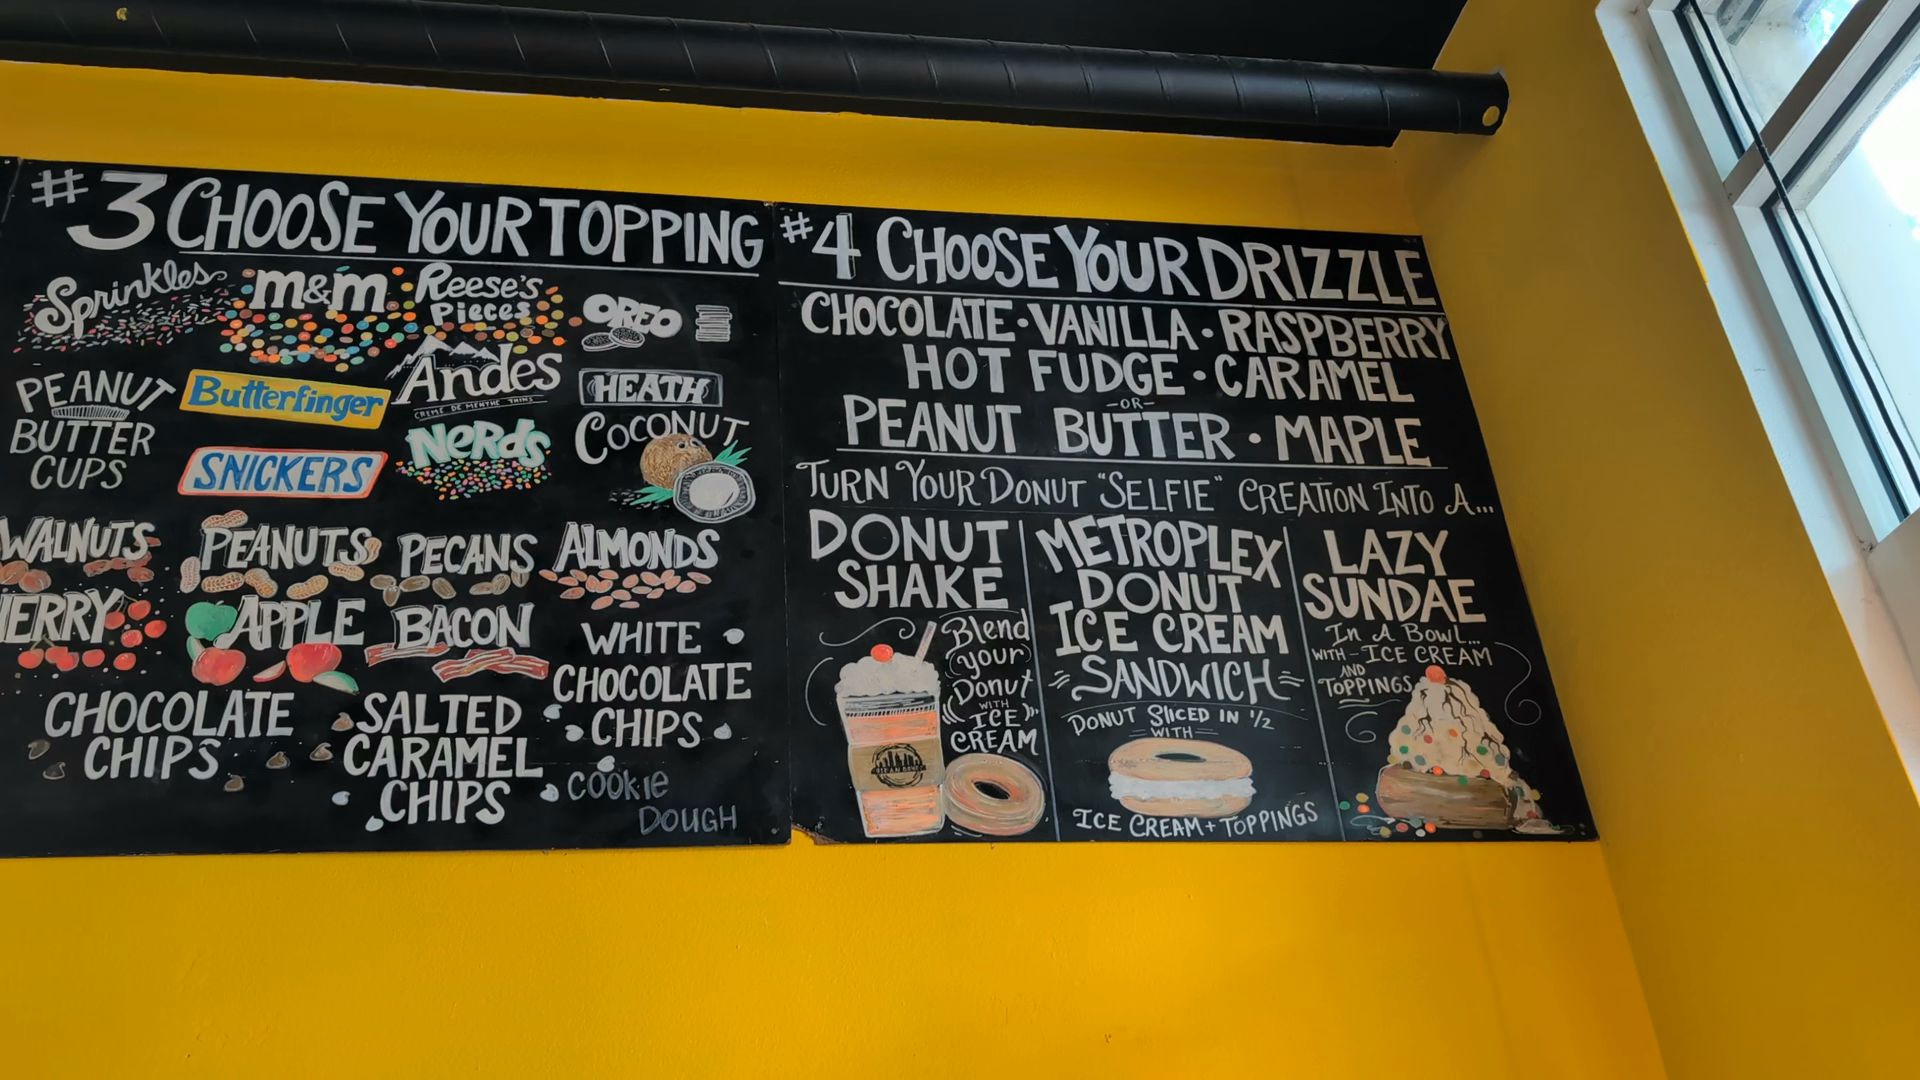 #3 CHOOSE YOUR TOPPING
Sprinkles
m&m
Reese's
Pieces
OREO
PEANUT
BUTTER
CUPS
Butterfinger
Andes
CREME DE MENTHE THINS
HEATH
SNICKERS
Nerds
COCONUT
WALNUTS
PEANUTS
PECANS
ALMONDS
APPLE
BACON
WHITE
CHOCOLATE
CHIPS
CHOCOLATE
CHIPS
SALTED
CARAMEL
CHIPS
COOKIE
DOUGH
#4 CHOOSE YOUR DRIZZLE
CHOCOLATE · VANILLA · RASPBERRY
HOT FUDGE · CARAMEL
-OR-
PEANUT BUTTER · MAPLE
TURN YOUR DONUT "SELFIE" CREATION INTO A...
DONUT
SHAKE
Blend
your
Donut
WITH
ICE
CREAM
METROPLEX
DONUT
ICE CREAM
SANDWICH
DONUT SLICED IN 1/2
WITH
ICE CREAM + TOPPINGS
LAZY
SUNDAE
IN A BOWL...
WITH - ICE CREAM
AND
TOPPINGS